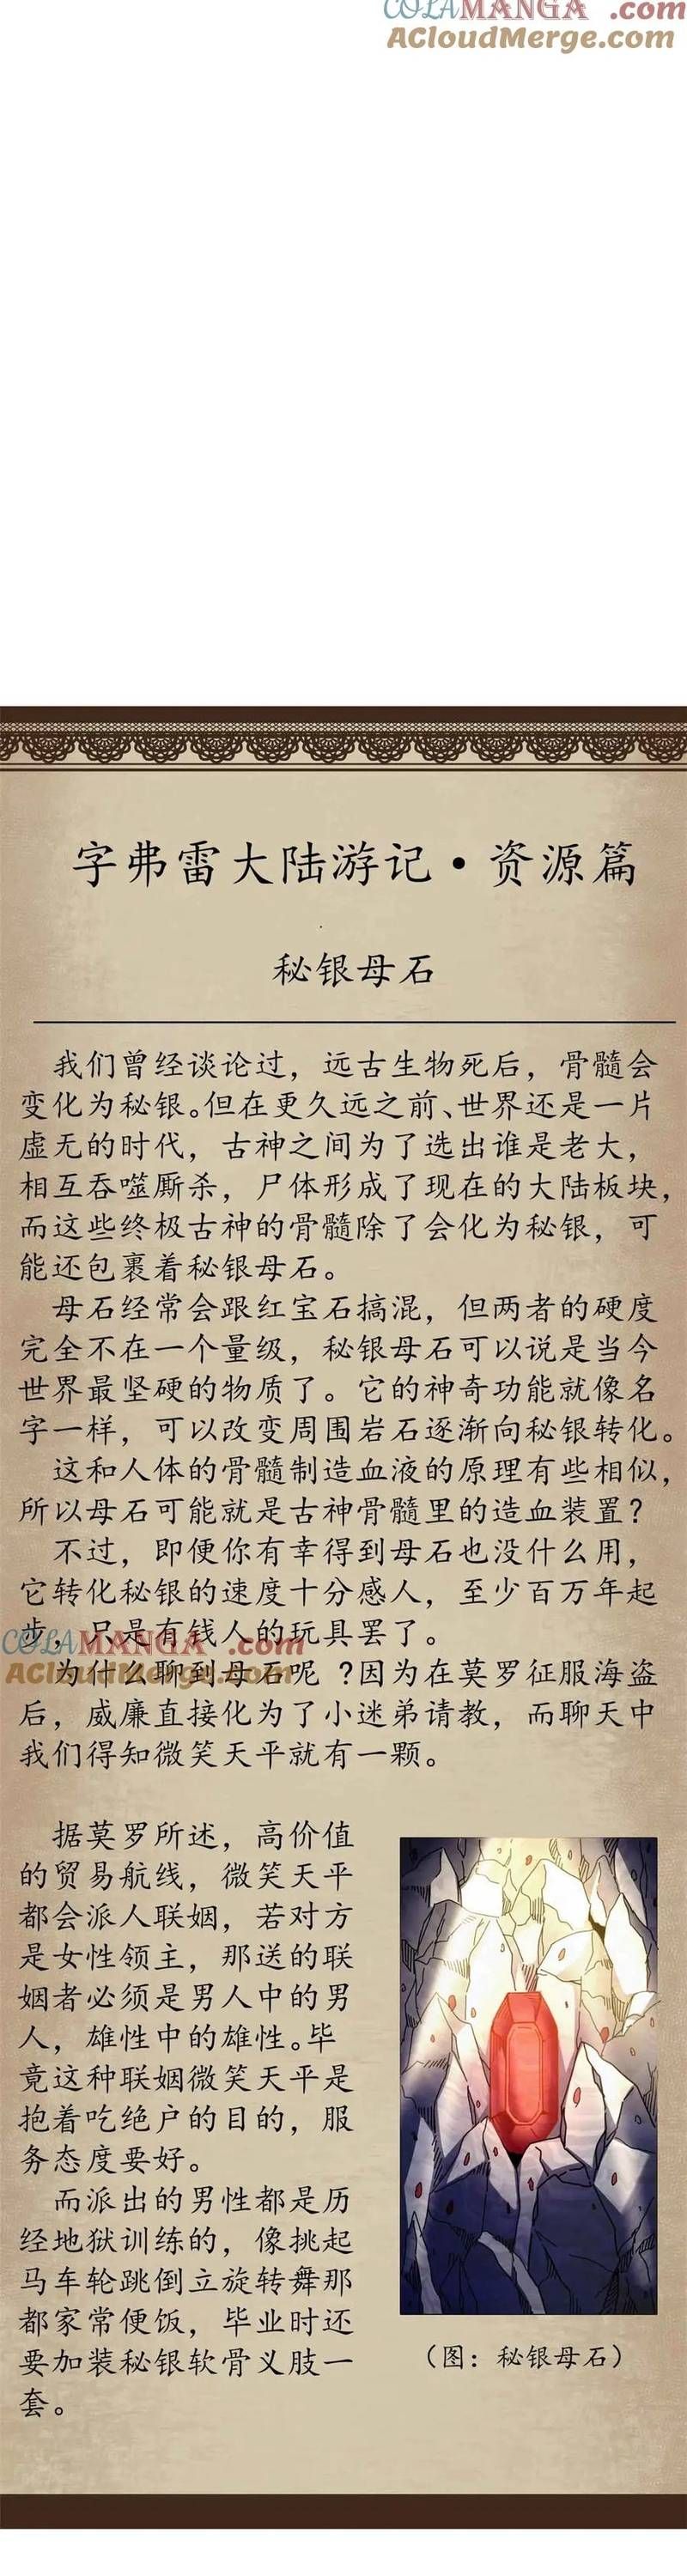 COLAMANGA.com
ACloudMerge.com
字弗雷大陆游记·资源篇
秘银母石
我们曾经谈论过，远古生物死后，骨髓会
变化为秘银。但在更久远之前、世界还是一片
虚无的时代，古神之间为了选出谁是老大，
相互吞噬厮杀，尸体形成了现在的大陆板块，
而这些终极古神的骨髓除了会化为秘银，可
能还包裹着秘银母石。
母石经常会跟红宝石搞混，但两者的硬度
完全不在一个量级，秘银母石可以说是当今
世界最坚硬的物质了。它的神奇功能就像名
字一样，可以改变周围岩石逐渐向秘银转化。
这和人体的骨髓制造血液的原理有些相似，
所以母石可能就是古神骨髓里的造血装置？
不过，即便你有幸得到母石也没什么用，
它转化秘银的速度十分感人，至少百万年起
步，只是有钱人的玩具罢了。
COLAMANGA.com
ACloudMerge.com
为什么聊到母石呢？因为在莫罗征服海盗
后，威廉直接化为了小迷弟请教，而聊天中
我们得知微笑天平就有一颗。
据莫罗所述，高价值
的贸易航线，微笑天平
都会派人联姻，若对方
是女性领主，那送的联
姻者必须是男人中的男
人，雄性中的雄性。毕
竟这种联姻微笑天平是
抱着吃绝户的目的，服
务态度要好。
而派出的男性都是历
经地狱训练的，像挑起
马车轮跳倒立旋转舞那
都家常便饭，毕业时还
要加装秘银软骨义肢一
套。
（图：秘银母石）